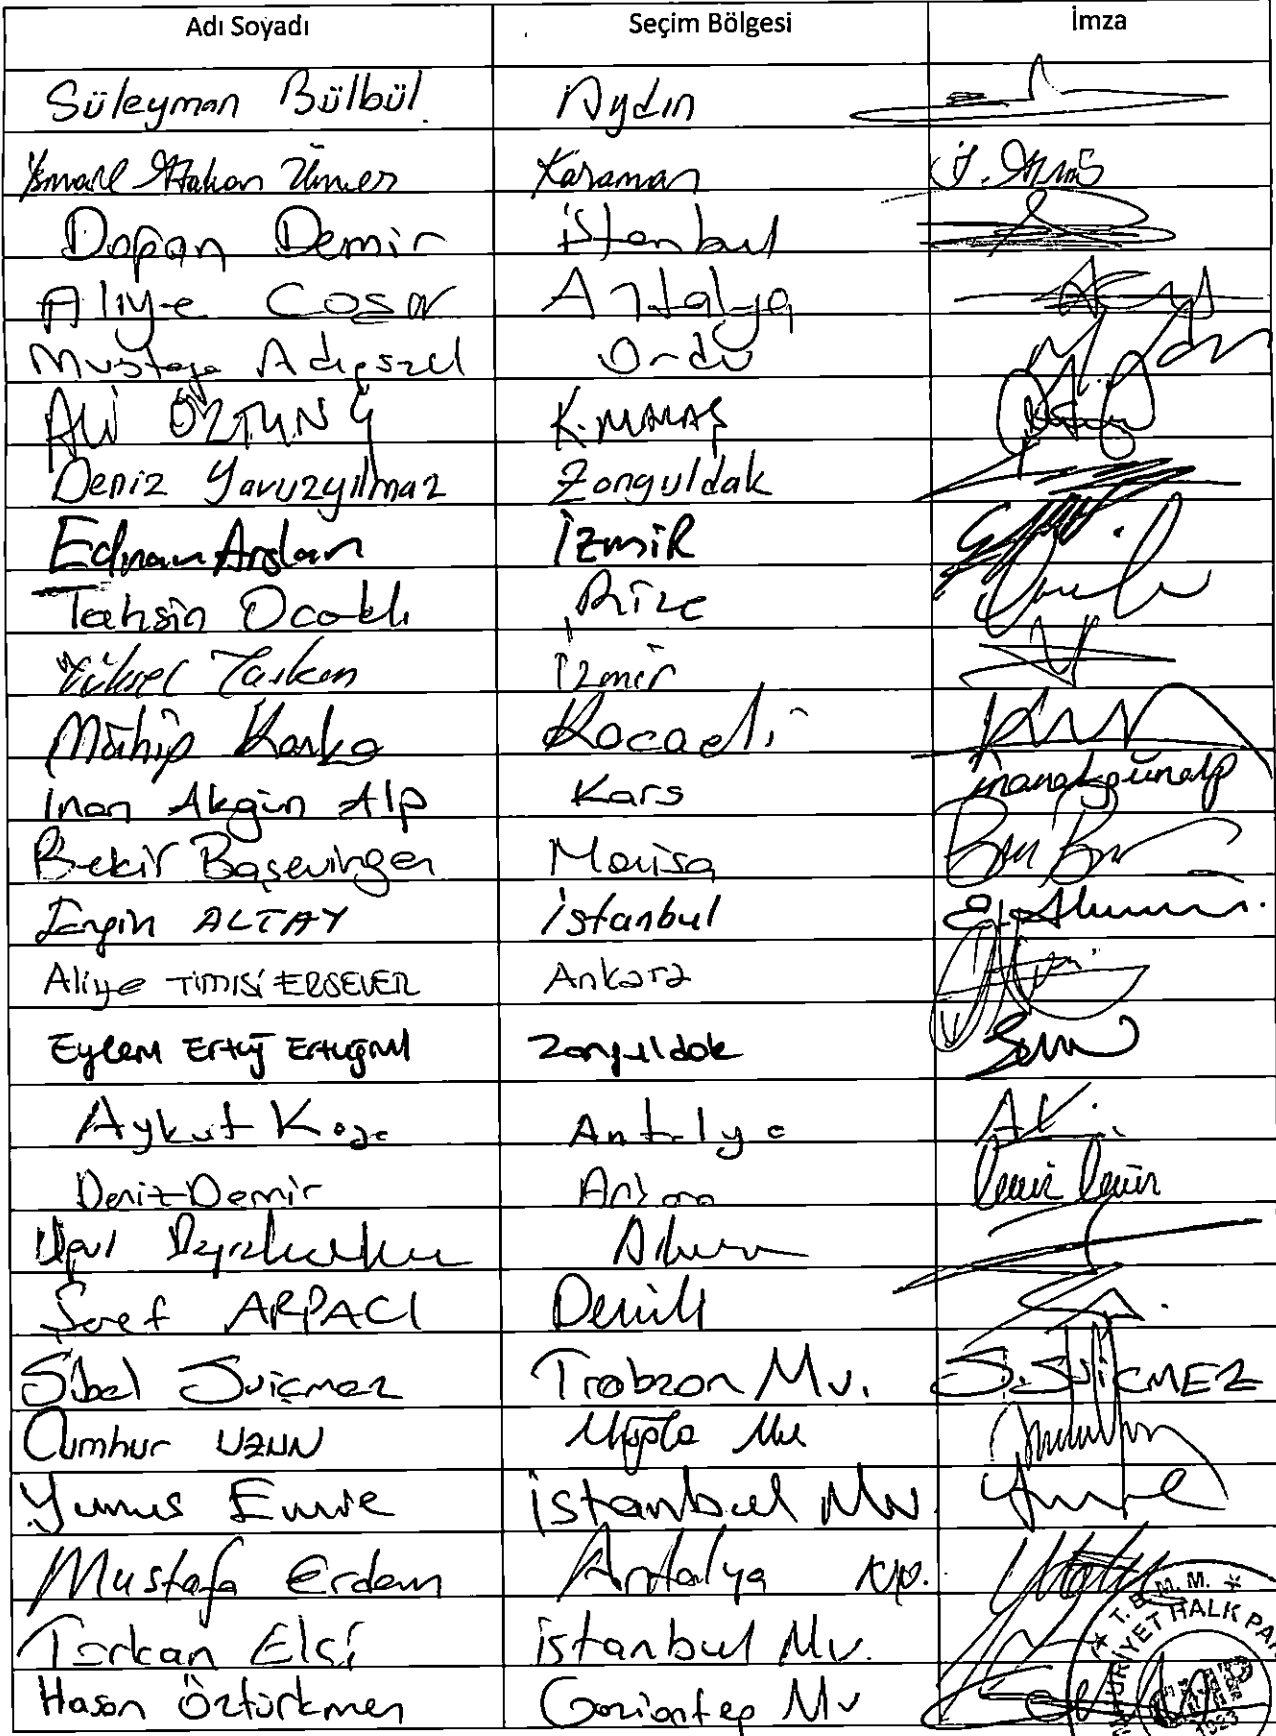 Adı Soyadı Seçim Bölgesi İmza
Süleyman Bülbül Aydın
İsmail Atakan Ünver Karaman
Doğan Demir İstanbul
Aliye Coşar Antalya
Mustafa Adıgüzel Ordu
ALİ ÖZTUNÇ K.MARAŞ
Deniz Yavuzyılmaz Zonguldak
Ednan Arslan İZMİR
Tahsin Ocaklı Rize
Yüksel Taşkın İzmir
Mühip Kanko Kocaeli
İnan Akgün Alp Kars inanakgünalp
Bekir Başevirgen Manisa
Engin ALTAY İstanbul
Aliye TİMİSİ ERSEVER Ankara
Eylem Ertuğ Ertuğrul Zonguldak
Aykut Kaya Antalya
Deniz Demir Ankara
Şeref ARPACI Denizli
Sibel Suiçmez Trabzon Mv. S.SUİÇMEZ
Cumhur UZUN Muğla Mv
Yunus Emre İstanbul Mv.
Mustafa Erdem Antalya Mv.
Türkan Elçi İstanbul Mv.
Hasan Öztürkmen Gaziantep Mv
T.B.M.M.
HALK
CHP
1923